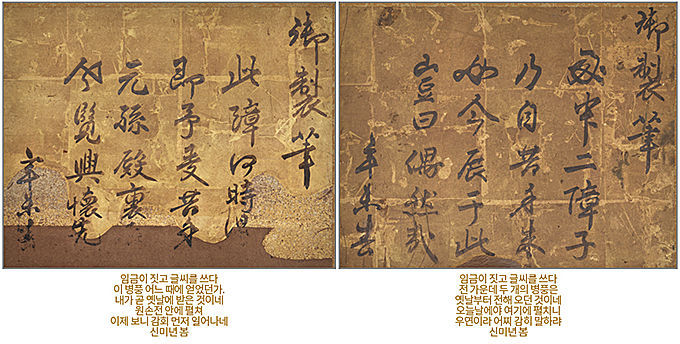 御製筆
此障何時得
即予受昔年
元孫殿裏
今覽興懷先
辛未春
임금이 짓고 글씨를 쓰다
이 병풍 어느 때에 얻었던가.
내가 곧 옛날에 받은 것이네
원손전 안에 펼쳐
이제 보니 감회 먼저 일어나네
신미년 봄
御製筆
殿中二障子
乃自昔年來
如今展于此
豈曰偶然哉
辛未春
임금이 짓고 글씨를 쓰다
전 가운데 두 개의 병풍은
옛날부터 전해 오던 것이네
오늘날에야 여기에 펼치니
우연이라 어찌 감히 말하랴
신미년 봄